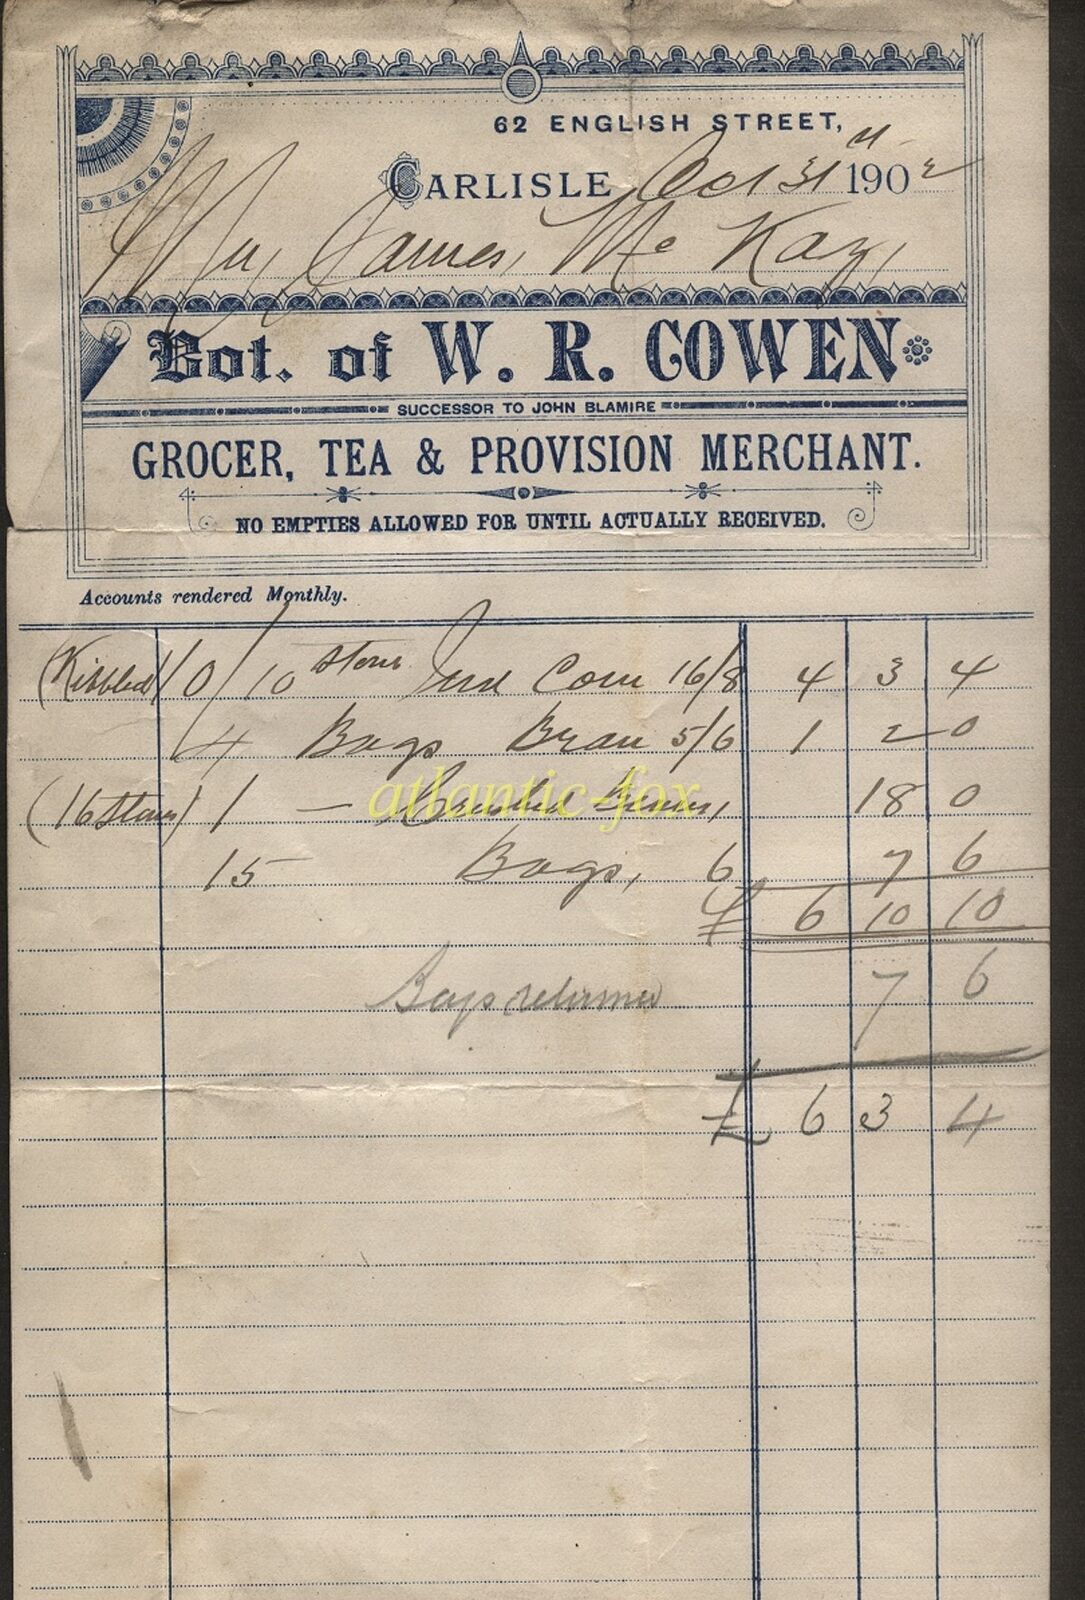 62 ENGLISH STREET,
CARLISLE, Oct 31st 1902
Mr James, Mc Kay,
Bot. of W. R. COWEN
SUCCESSOR TO JOHN BLAMIRE
GROCER, TEA & PROVISION MERCHANT.
NO EMPTIES ALLOWED FOR UNTIL ACTUALLY RECEIVED.
Accounts rendered Monthly.
(Kibbled) 10/10 stone Ind Corn 16/8 4 3 4
4 Bags Bran 5/6 1 2 0
(16 Stone) 1 — Crushed 18 0
15 Bags, 6 7 6
£ 6 10 10
Bags returned 7 6
£ 6 3 4
atlantic-fox